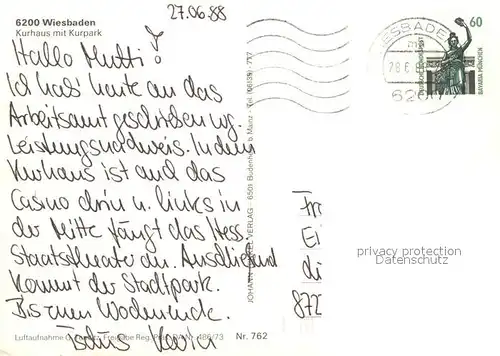 27.06.88
6200 Wiesbaden
Kurhaus mit Kurpark
Hallo Mutti!
Ich hab' heute an das
Arbeitsamt geschrieben wg.
Leistungsnachweis. In dem
Kurhaus ist auch das
Casino drin u. links in
der Mitte fängt das Hess.
Staatstheater an. Anschließend
kommt der Stadtpark.
Bis zum Wochenende.
Tschüs
Luftaufnahme Freigabe Reg. 466/73 Nr. 762
JOHANN VERLAG 6501 Budenheim b. Mainz Tel. (06139) 717
WIESBADEN
28.6.
620
60
DEUTSCHE BUNDESPOST
BAVARIA MÜNCHEN
Fr
Ei
di
872
privacy protection
Datenschutz